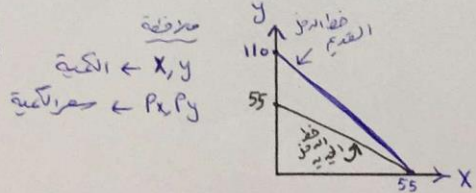 ملاحظة
X, y ← الكمية
Px, Py ← سعر الكمية
y
خط الدخل
القديم
110
55
خط
55
X